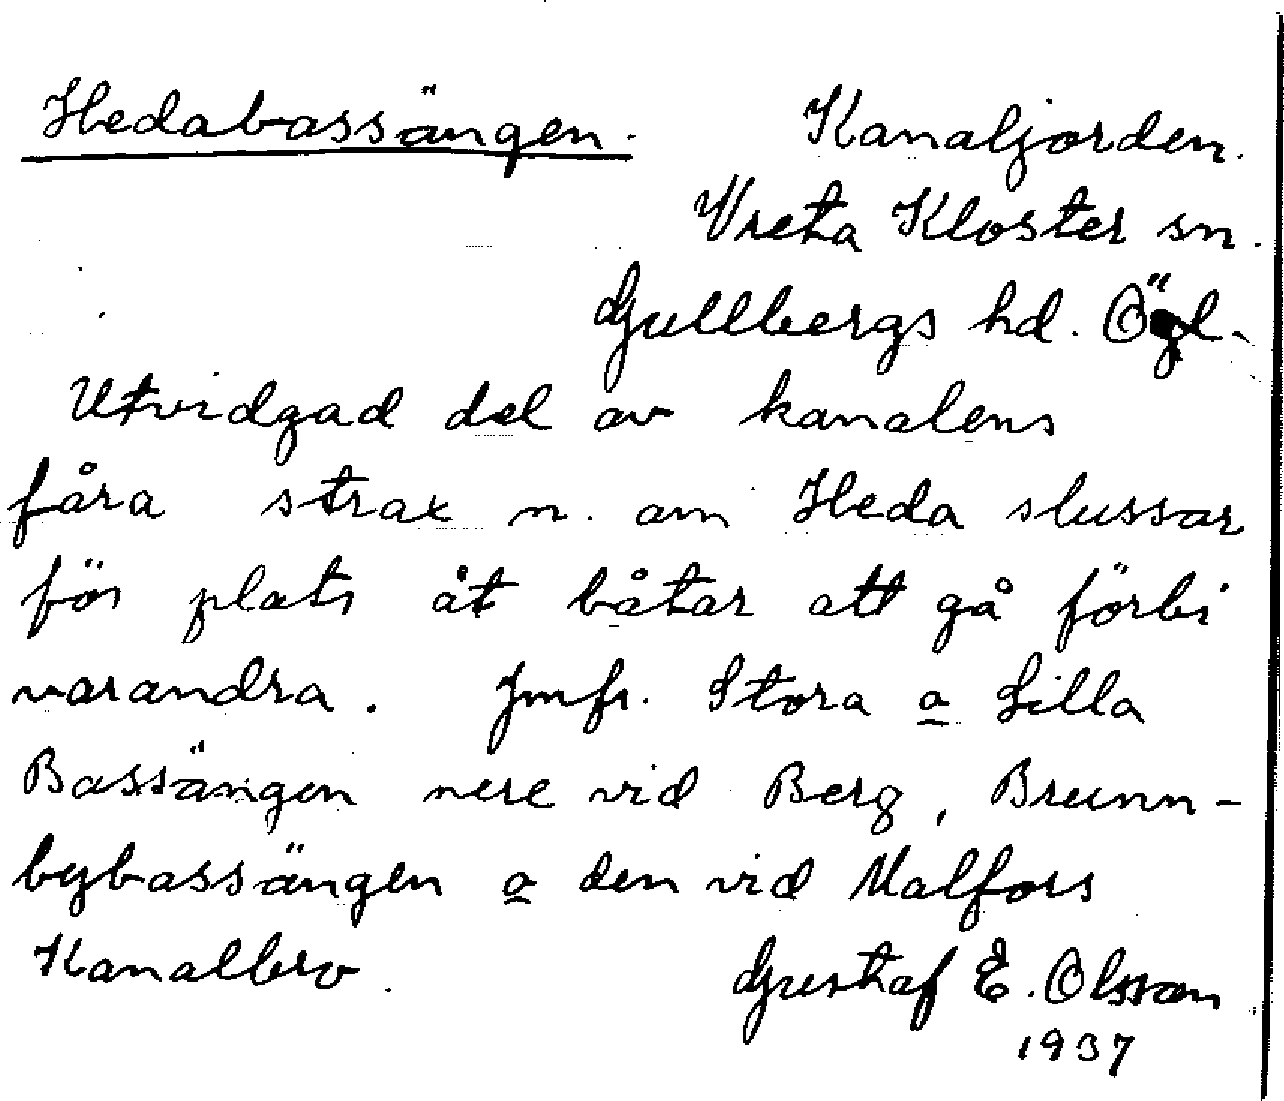 Hedabassängen. Kanaljorden.
Vreta Kloster sn.
Gullbergs hd. Ögl.
Utvidgad del av kanalens
fåra strax n. om Heda slussar
för plats åt båtar att gå förbi
varandra. Jmfr. Stora o Lilla
Bassängen nere vid Berg, Brunn-
bybassängen o den vid Malfors
Kanalbro.
Gustaf E. Olsson
1937